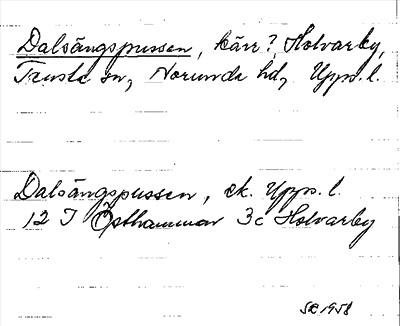 Dalsängspussen, kärr? Holvarby,
Tensta sn, Norunda hd, Upps. l.
Dalsängspussen, ek. Upps. l.
12 I Östhammar 3c Holvarby
SE 1958